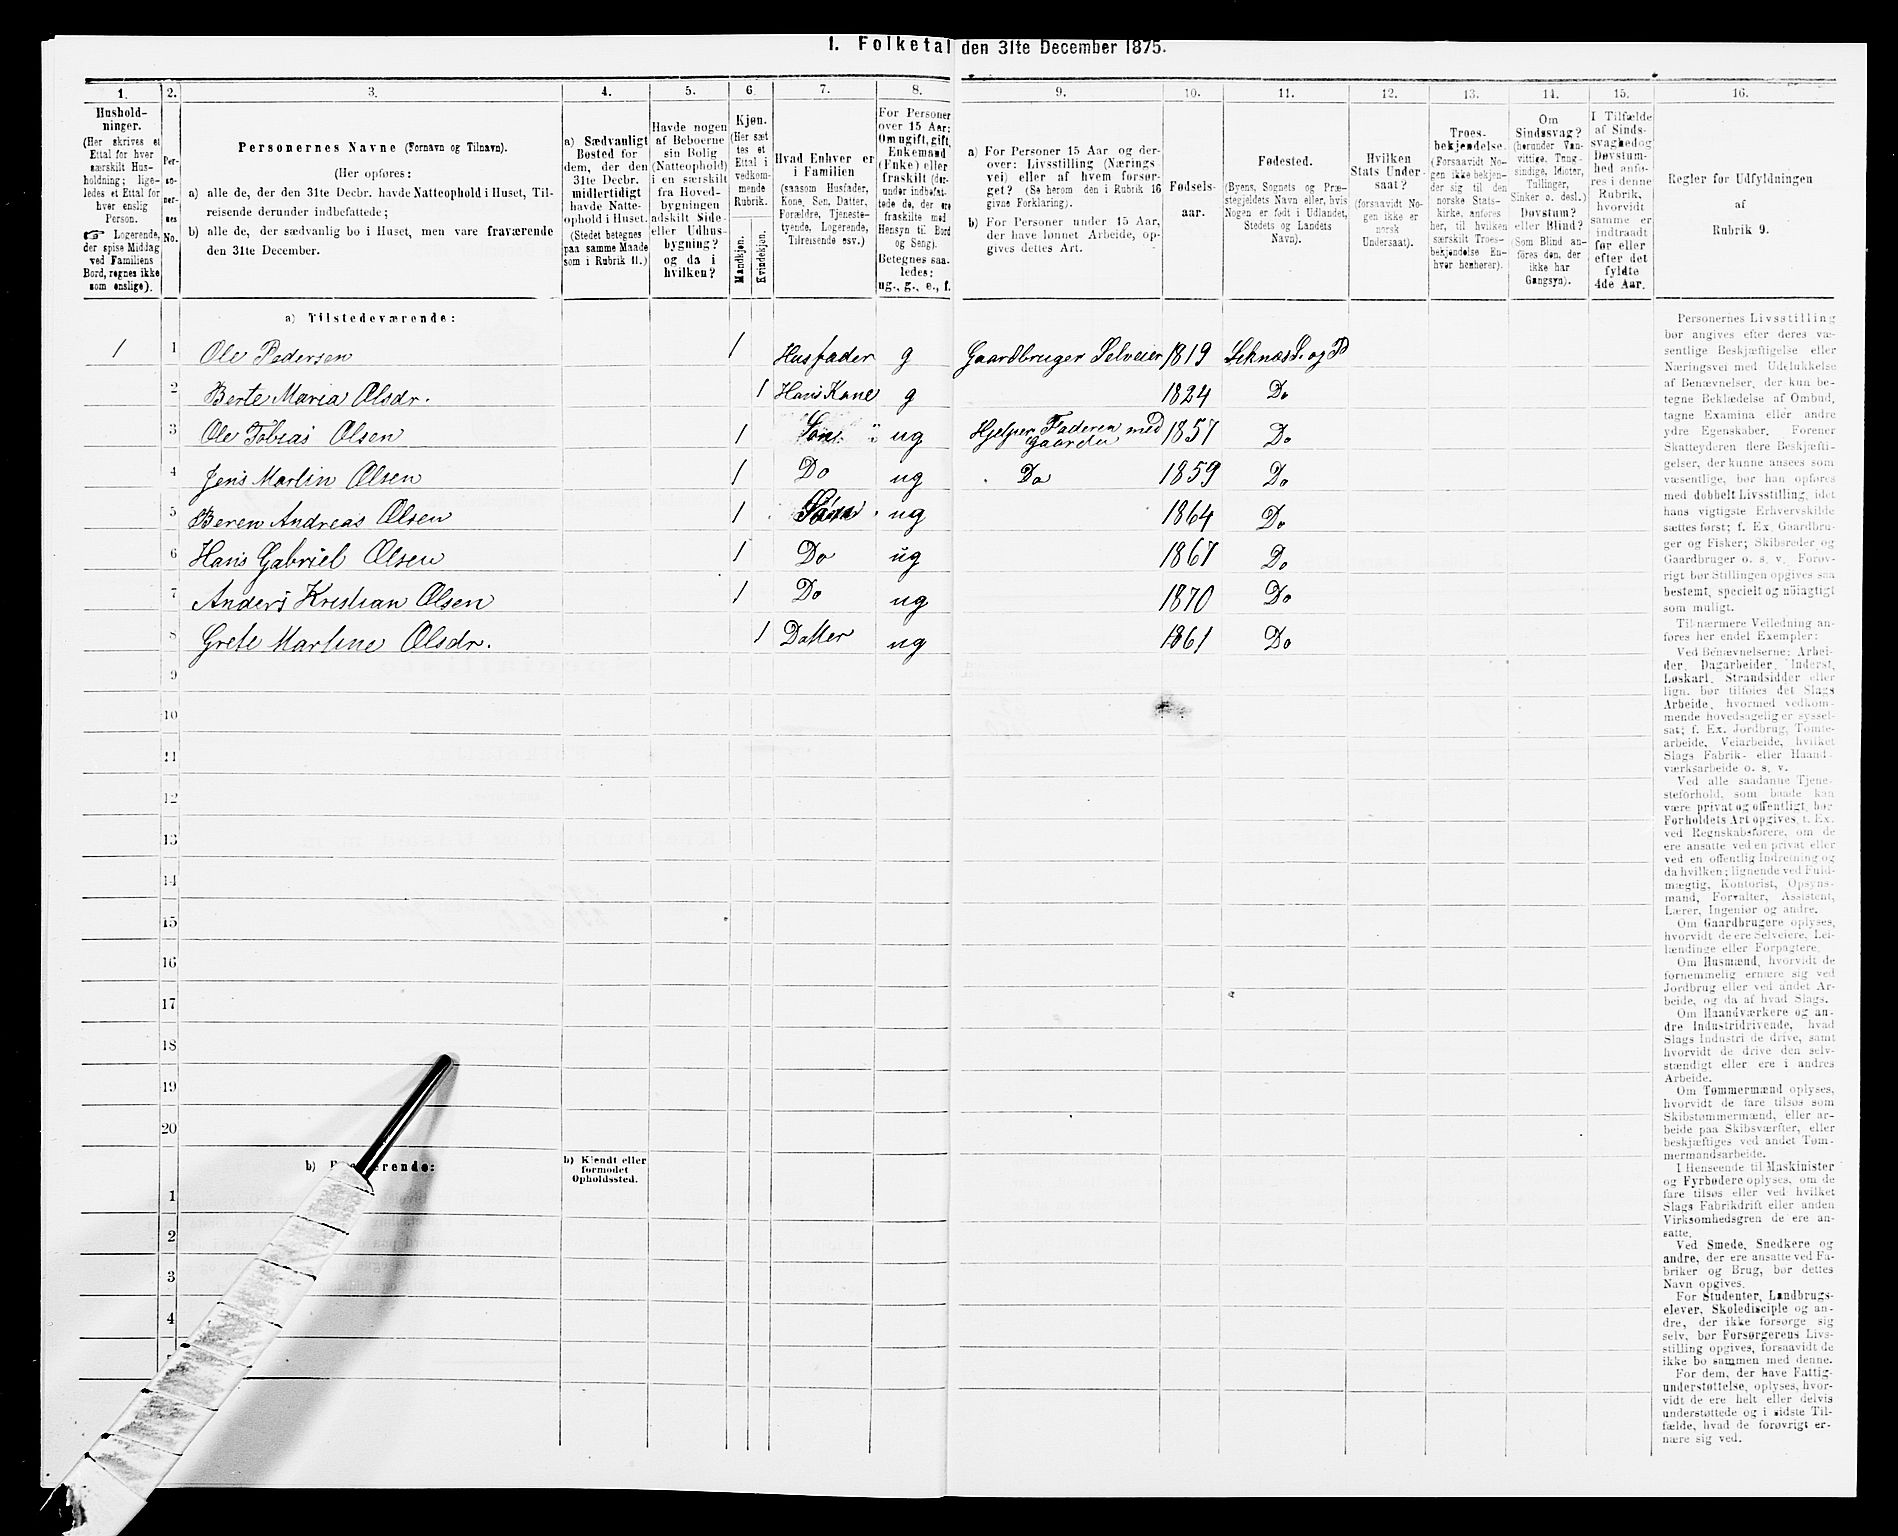 1. Folketal den 31te December 1875.
1. 2. 3. 4. 5. 6. 7. 8. 9. 10. 11. 12. 13. 14. 15. 16.
Hushold-
ninger.
(Her skrives et
Ettal for hver
særskilt Hus-
holdning; lige-
ledes et Ettal for
hver enslig
Person.
☞ Logerende,
der spise Middag
ved Familiens
Bord, regnes ikke
som enslige).
Per-
so-
ner-
nes
No.
Personernes Navne (Fornavn og Tilnavn).
(Her opføres:
a) alle de, der den 31te Decbr. havde Natteophold i Huset, Til-
reisende derunder indbefattede;
b) alle de, der sædvanlig bo i Huset, men vare fraværende
den 31te December.
a) Sædvanligt
Bosted for
dem, der den
31te Decbr.
midlertidigt
havde Natte-
ophold i Huset.
(Stedet betegnes
paa samme Maade
som i Rubrik 11.)
Havde nogen
af Beboerne
sin Bolig
(Natteophold)
i en særskilt
fra Hoved-
bygningen
adskilt Side-
eller Udhus-
bygning?
og da i
hvilken?
Kjøn.
(Her sæt
tes et
Ettal i
vedkom-
mende
Rubrik.
Mandkjøn.
Kvindekjøn.
Hvad Enhver er
i Familien
(saasom Husfader,
Kone, Søn, Datter,
Forældre, Tjeneste-
tyende, Logerende,
Tilreisende osv.)
For Personer
over 15 Aar:
Om ugift, gift,
Enkemand
(Enke) eller
fraskilt (der-
under indbefat-
tede de, der ere
fraskilte med
Hensyn til Bord
og Seng).
Betegnes saa-
ledes:
ug., g., e., f.
a) For Personer 15 Aar og der-
over: Livsstilling (Nærings-
vei) eller af hvem forsør-
get? (Se herom den i Rubrik 16
givne Forklaring).
b) For Personer under 15 Aar,
der have lønnet Arbeide, op-
gives dettes Art.
Fødsels-
aar.
Fødested.
(Byens, Sognets og Præ-
stegjeldets Navn eller, hvis
Nogen er født i Udlandet,
Stedets og Landets
Navn).
Hvilken
Stats Under-
saat?
(forsaavidt No-
gen ikke er
norsk
Undersaat).
Troes-
bekjendelse.
(Forsaavidt No-
gen ikke bekjen-
der sig til den
norske Stats-
kirke, anføres
her, til hvilken
særskilt Troes-
bekjendelse En-
hver henhører).
Om
Sindssvag?
(herunder Van-
vittige, Tung-
sindige, Idioter,
Tullinger,
Sinker o. desl.)
Døvstum?
eller Blind?
(Som Blind an-
føres den, der
ikke har
Gangsyn).
I Tilfælde
af Sinds-
svaghed og
Døvstum-
hed anfø-
res i denne
Rubrik,
hvorvidt
samme er
indtraadt
før eller
efter det
fyldte
4de Aar.
Regler for Udfyldningen
af
Rubrik 9.
a) Tilstedeværende:
1 1 Ole Pedersen 1 Husfader g Gaardbruger Selveier 1819 Leknæs S. og P
2 Berte Maria Olsdr. 1 Hans Kone g 1824 Do
3 Ole Tobias Olsen 1 Søn ug Hjelper Faderen med Gaarden 1857 Do
4 Jens Martin Olsen 1 Do ug Do 1859 Do
5 Beren Andreas Olsen 1 Søn ug 1864 Do
6 Hans Gabriel Olsen 1 Do ug 1867 Do
7 Anders Kristian Olsen 1 Do ug 1870 Do
8 Grete Martine Olsdr. 1 Datter ug 1861 Do
9
10
11
12
13
14
15
16
17
18
19
20
b) erende:
b) Kjendt eller
formodet
Opholdssted.
1
2
3
4
Personernes Livsstilling
bør angives efter deres væ-
sentlige Beskjæftigelse eller
Næringsvei med Udelukkelse
af Benævnelser, der kun be-
tegne Beklædelse af Ombud,
tagne Examina eller andre
ydre Egenskaber. Forener
Skatteyderen flere Beskjæfti-
gelser, der kunne ansees som
væsentlige, bør han opføres
med dobbelt Livsstilling, idet
hans vigtigste Erhvervskilde
sættes først; f. Ex. Gaardbru-
ger og Fisker; Skibsreder og
Gaardbruger o. s. v. Forøv-
rigt bør Stillingen opgives saa
bestemt, specielt og nøiagtigt
som muligt.
Til nærmere Veiledning an-
føres her endel Exempler:
Ved Benævnelserne: Arbei-
der, Dagarbeider, Inderst,
Løskarl, Strandsidder eller
lign. bør tilføies det Slags
Arbeide, hvormed vedkom-
mende hovedsagelig er syssel-
sat; f. Ex. Jordbrug, Tomte-
arbeide, Veiarbeide, hvilket
Slags Fabrik- eller Haand-
værksarbeide o. s. v.
Ved alle saadanne Tjene-
steforhold, som baade kan
være privat og offentligt, bør
Forholdets Art opgives, f. Ex.
ved Regnskabsførere, om de
ere ansatte ved en privat eller
ved en offentlig Indretning og
da hvilken; lignende ved Fuld-
mægtig, Kontorist, Opsyns-
mand, Forvalter, Assistent,
Lærer, Ingeniør og andre.
Om Gaardbrugere oplyses,
hvorvidt de ere Selveiere, Lei-
lændinge eller Forpagtere.
Om Husmænd, hvorvidt de
fornemmelig ernære sig ved
Jordbrug eller ved andet Ar-
beide, og da af hvad Slags.
Om Haandværkere og an-
dre Industridrivende, hvad
Slags Industri de drive, samt
hvorvidt de drive den selv-
stændigt eller ere i andres
Arbeide.
Om Tømmermænd oplyses,
hvorvidt de fare tilsøs som
Skibstømmermænd, eller ar-
beide paa Skibsværfter, eller
beskjæftiges ved andet Tøm-
mermandsarbeide.
I Henseende til Maskinister
og Fyrbødere oplyses, om de
fare tilsøs eller ved hvilket
Slags Fabrikdrift eller anden
Virksomhedsgren de ere an-
satte.
Ved Smede, Snedkere og
andre, der ere ansatte ved Fa-
briker og Brug, bør dettes
Navn opgives.
For Studenter, Landbrugs-
elever, Skoledisciple og an-
dre, der ikke forsørge sig
selv, bør Forsørgerens Livs-
stilling opgives, forsaavidt de
ikke bo sammen med denne.
For dem, der have Fattig-
understøttelse, oplyses, hvor-
vidt de ere helt eller delvis
understøttede og i sidste Til-
fælde, hvad de forøvrigt er-
nære sig ved.